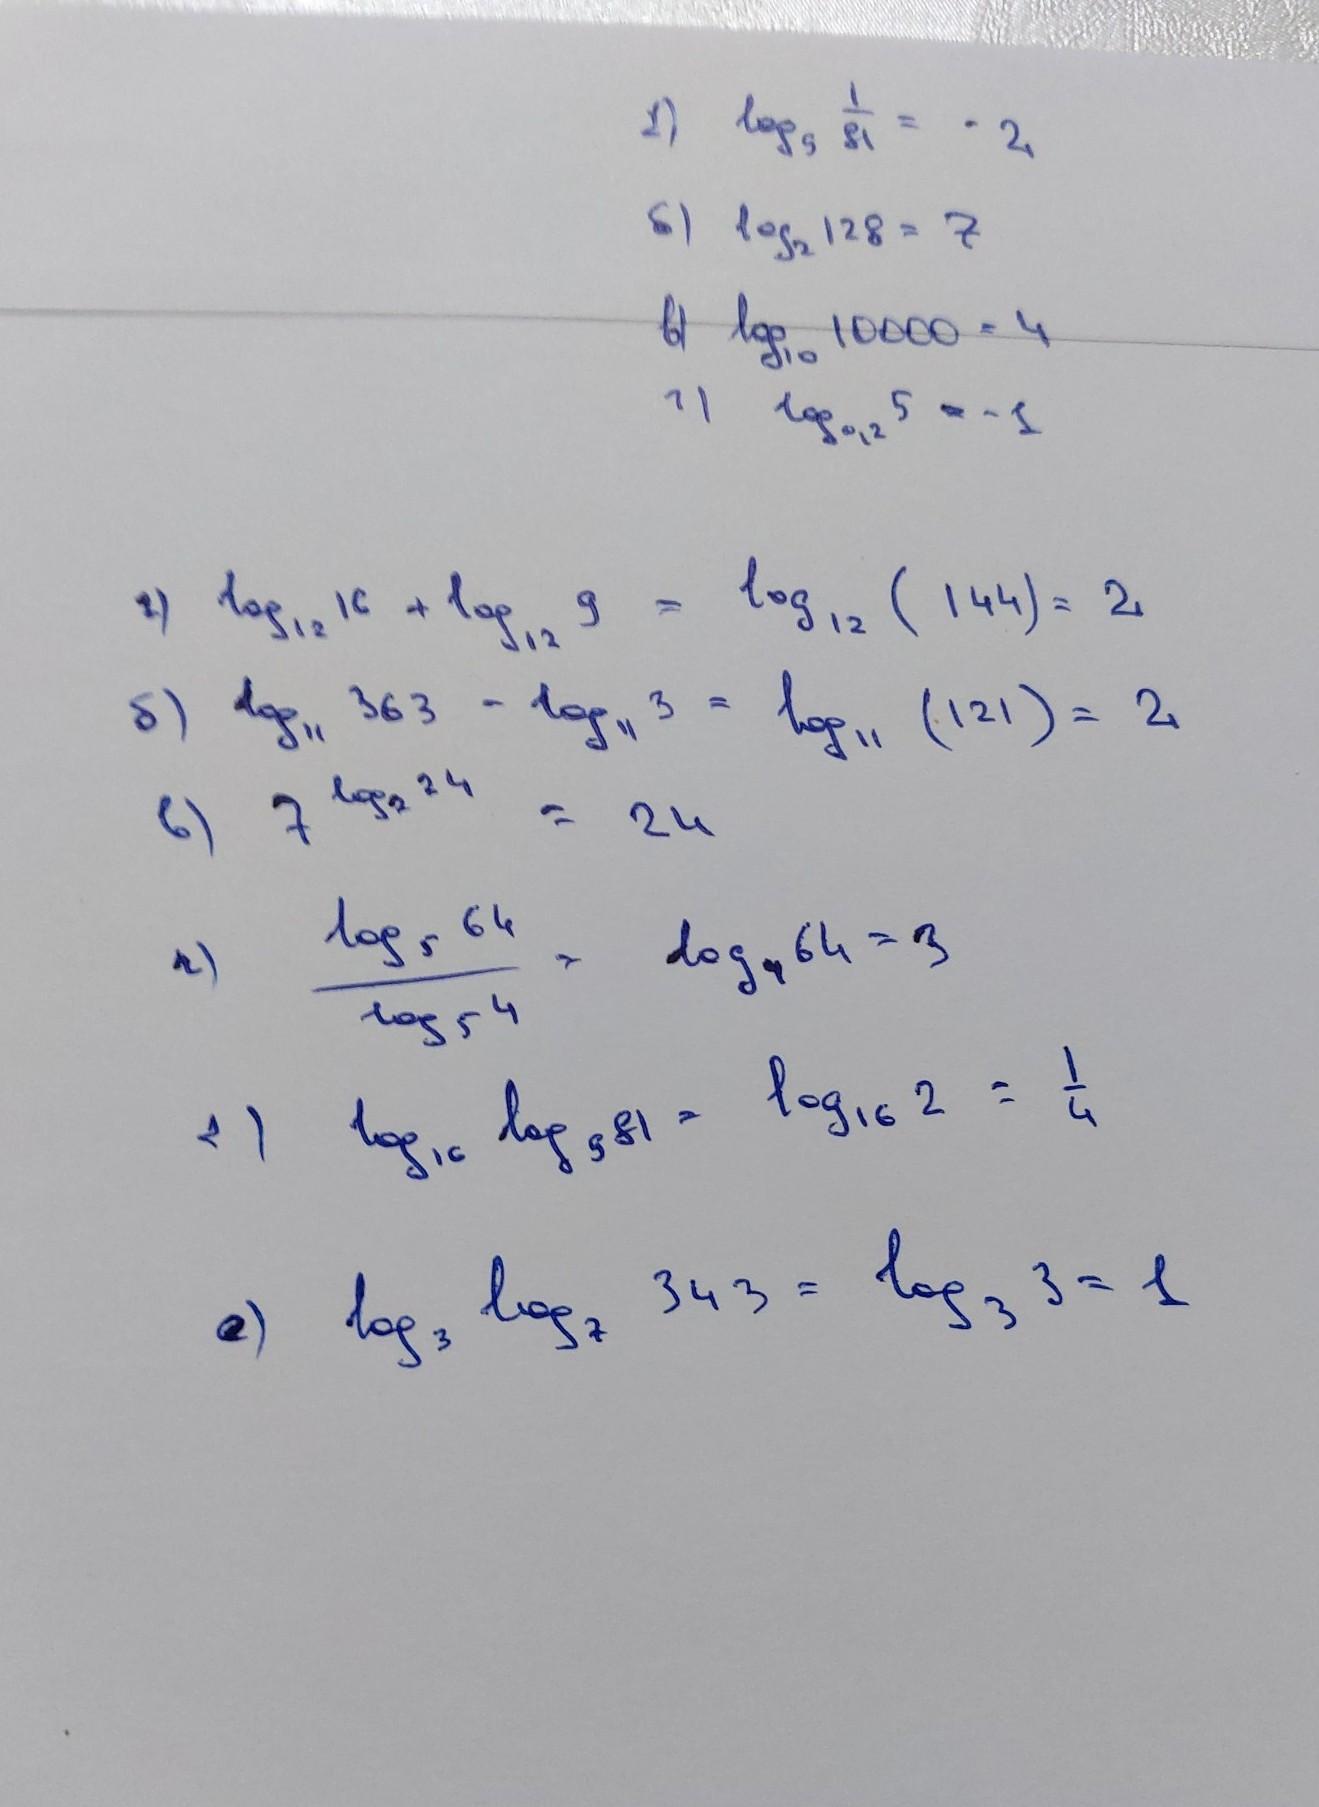 1) log₉ 1/81 = -2
б) log₂ 128 = 7
в) log₁₀ 10000 = 4
г) log₀,₂ 5 = -1
1) log₁₂ 16 + log₁₂ 9 = log₁₂ (144) = 2
б) log₁₁ 363 - log₁₁ 3 = log₁₁ (121) = 2
в) 7^(log₇ 24) = 24
г) log₅ 64 / log₅ 4 = log₄ 64 = 3
1) log₁₆ log₉ 81 = log₁₆ 2 = 1/4
е) log₃ log₇ 343 = log₃ 3 = 1